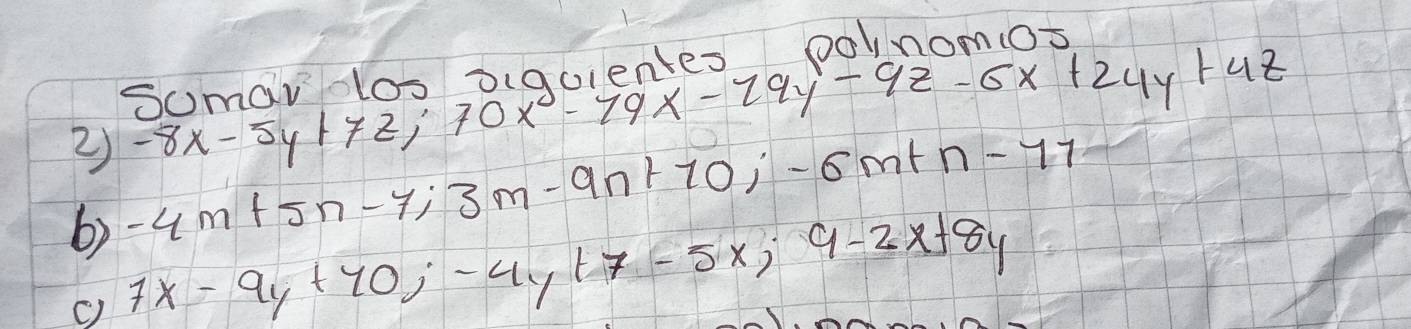 Sumar los siguientes polinomios
2) -8x - 5y + 7z; 10x - 19x - 19y - 9z - 6x + 24y + 4z
b) -4m + 5n - 7; 3m - 9n + 10; -6m + n - 11
c) 7x - 9y + 10; -4y + 7 - 5x; 9 - 2x + 8y